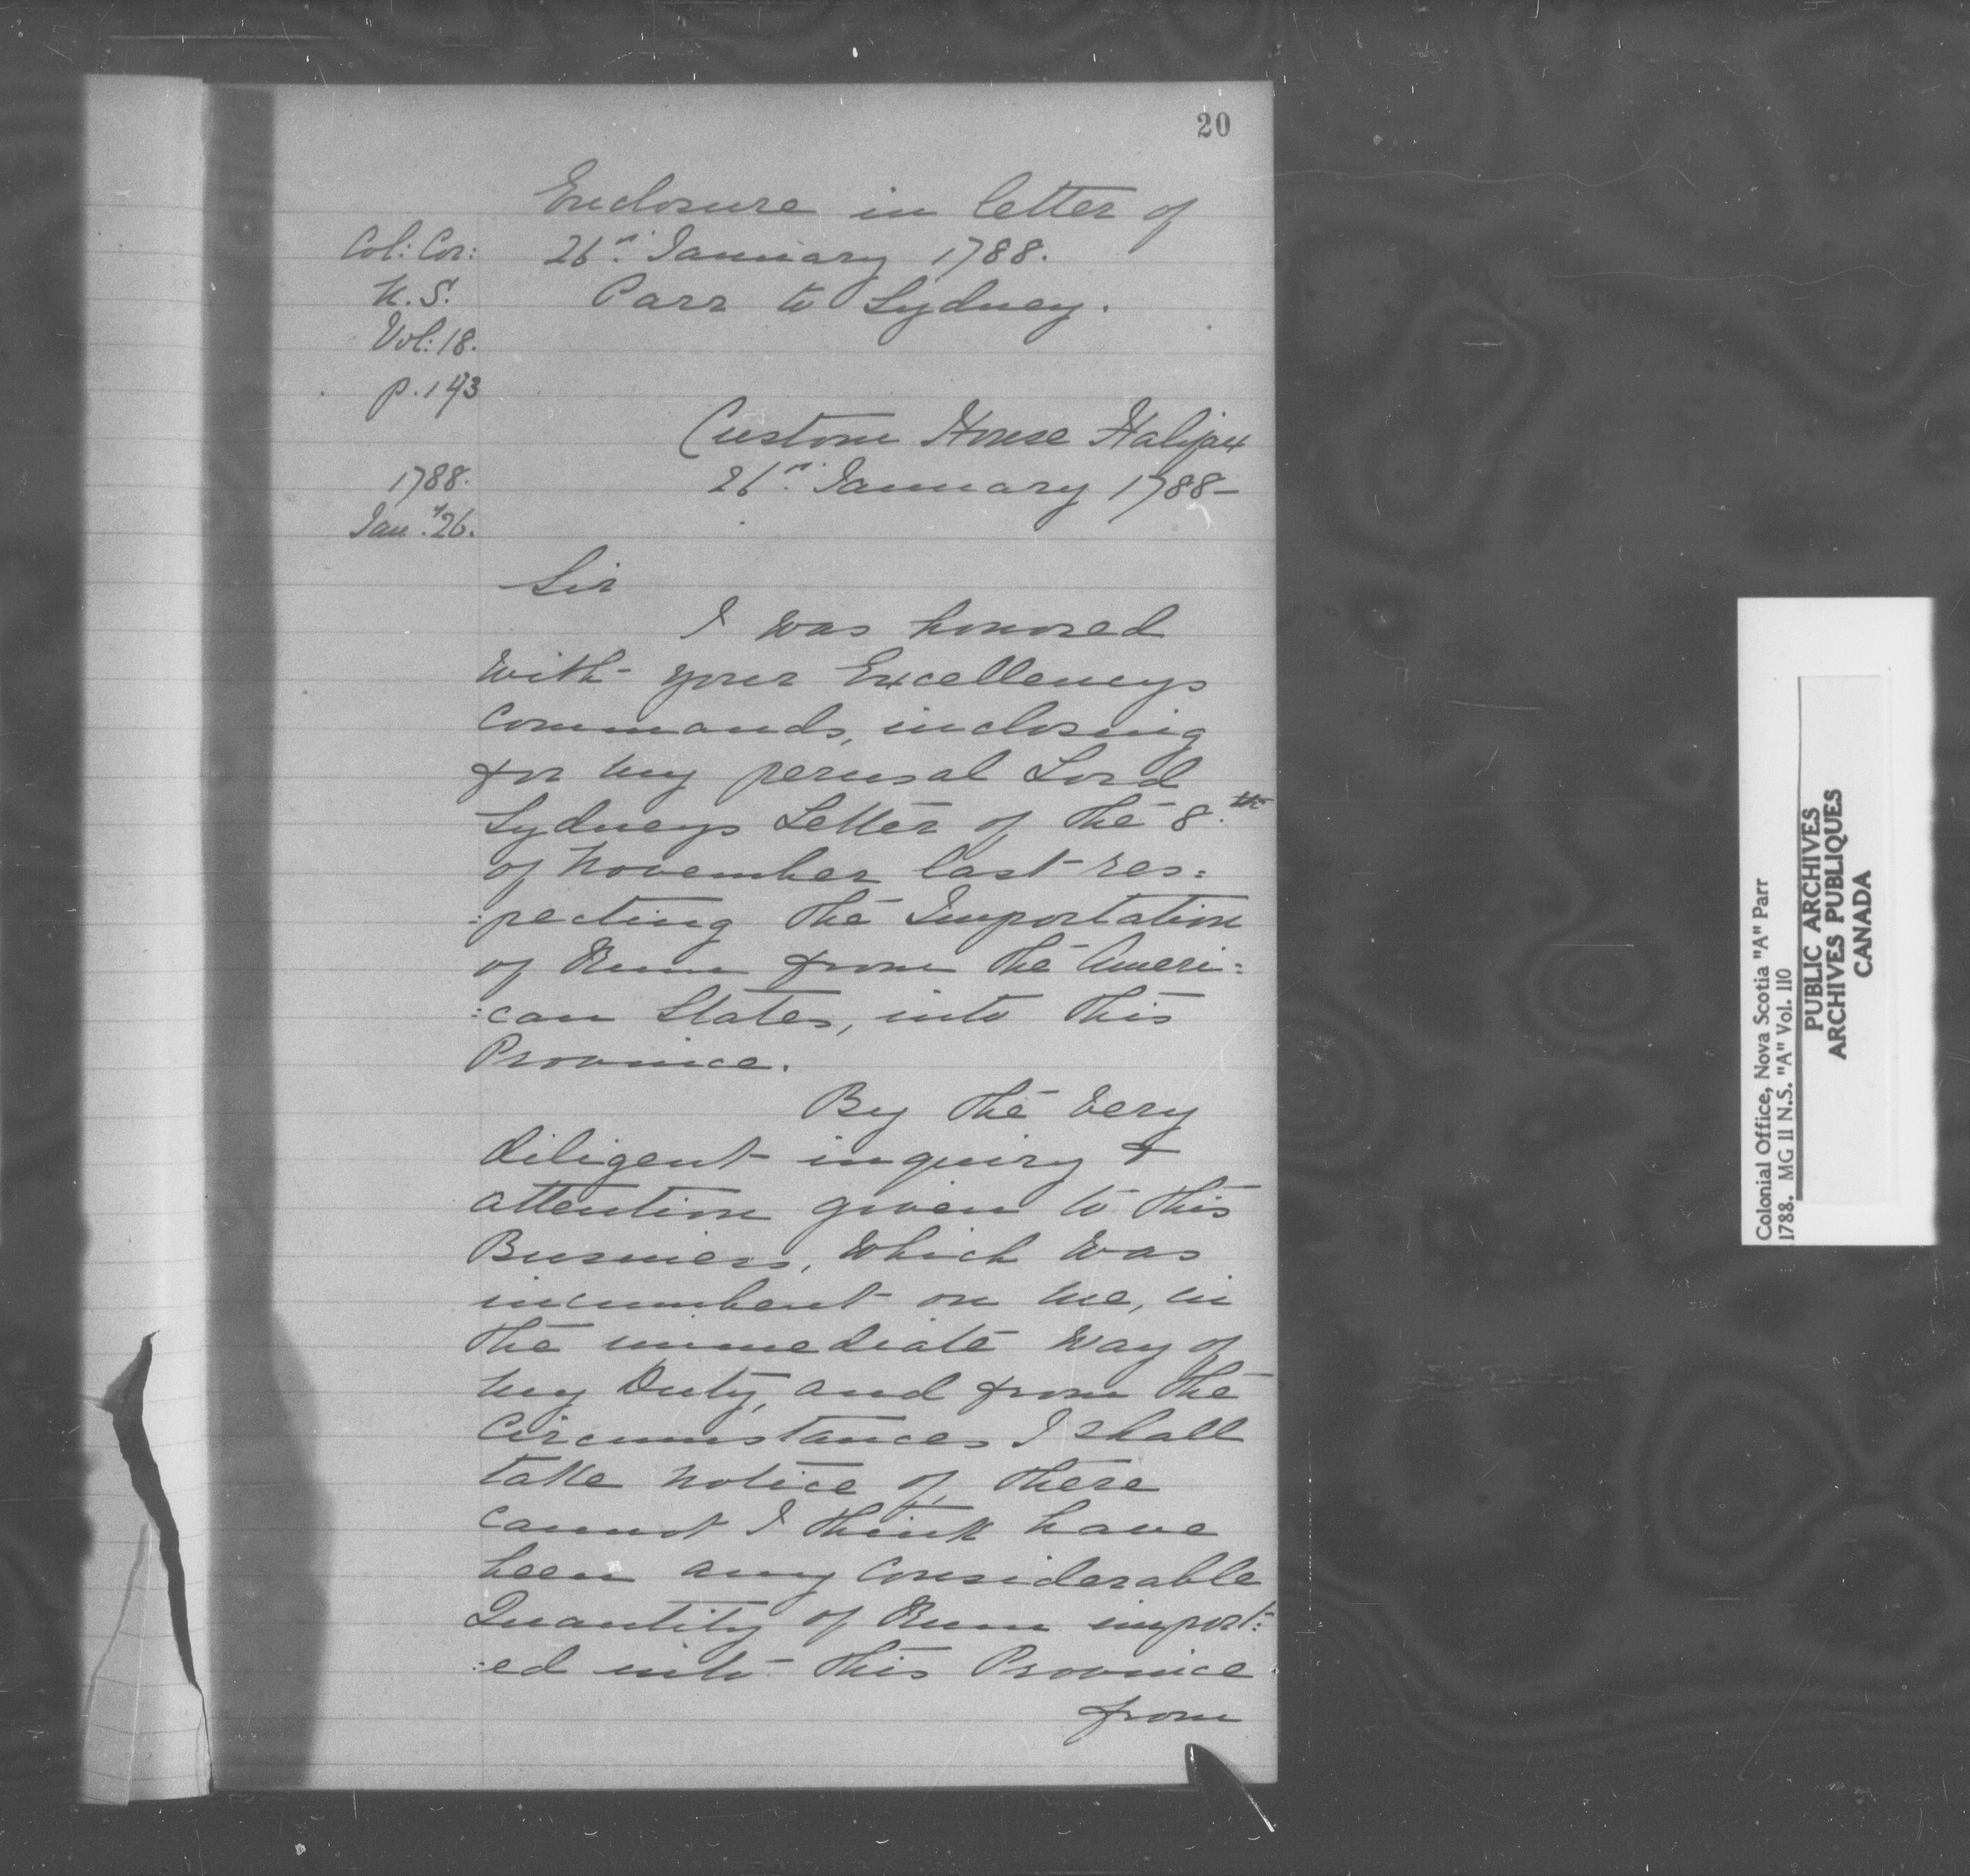 20
Enclosure in letter of
Col: Cor: 26th. January 1788.
N.S. Parr to Sydney.
Vol: 18.
p. 143
Custom House Halifax
1788. 26th. January 1788-
Jan: 26.
Sir
I was honored
with your Excellencys
Commands, inclosing
for my perusal Lord
Sydneys Letter of the 8.th
of November last res:
:pecting the Importation
of Rum from the Ameri:
:can States, into this
Province.
By the very
diligent inquiry &
attention given to this
Business, which was
incumbent on me, in
the immediate way of
my Duty, and from the
Circumstances I shall
take notice of, there
cannot I think have
been any Considerable
Quantity of Rum import:
:ed into this Province
from
Colonial Office, Nova Scotia "A" Parr
1788. MG 11 N.S. "A" Vol. 110
PUBLIC ARCHIVES
ARCHIVES PUBLIQUES
CANADA